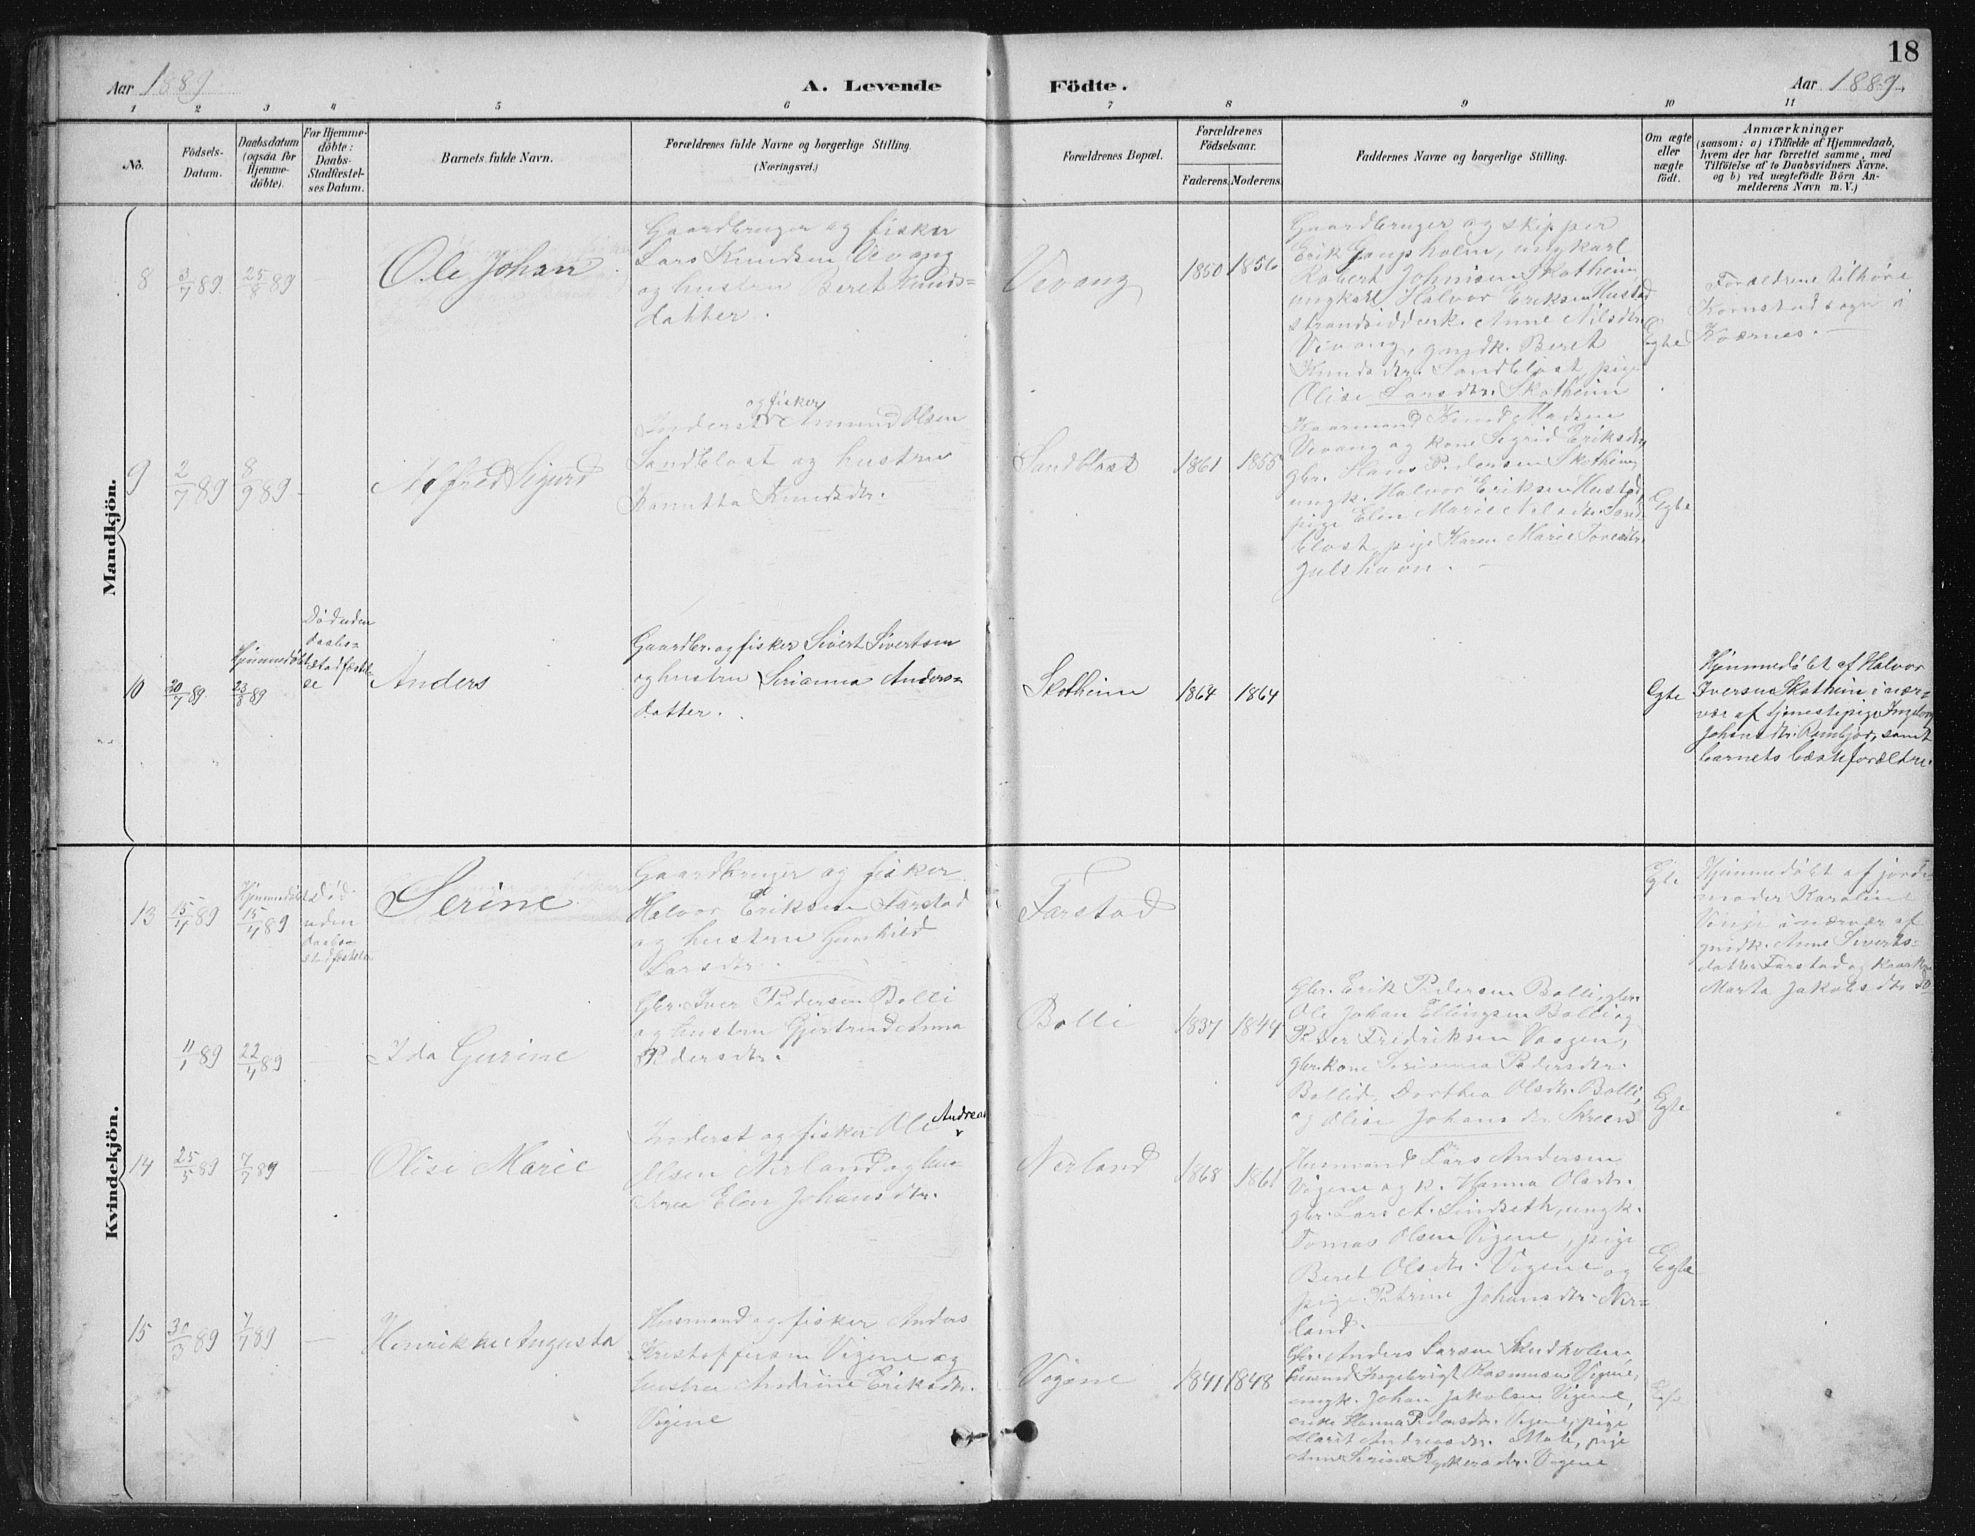 18
Aar 1889
A. Levende Födte.
Aar 1889.
1 2 3 4 5 6 7 8 9 10 11
No.
Födsels-
Datum.
Daabsdatum
(ogsaa for
Hjemme-
döbte).
For Hjemme-
döbte:
Daabs-
Stadfæstel-
ses Datum.
Barnets fulde Navn.
Forældrenes fulde Navne og borgerlige Stilling
(Næringsvei.)
Forældrenes Bopæl.
Forældrenes
Födselsaar.
Faderens. Moderens.
Faddernes Navne og borgerlige Stilling.
Om ægte
eller
uægte
födt.
Anmærkninger
(saasom: a) i Tilfælde af Hjemmedaab,
hvem der har forrettet samme, med
Tilföielse af to Daabsvidners Navne.
og b) ved uægtefödte Börn An-
melderens Navn m. V.)
Mandkjön.
8
3/7 89
25/8 89
Ole Johan
Gaardbruger og fisker
Lars Knudsen Vevang
og hustru Beret Knuds-
datter.
Vevang
1850 1856
Gaardbruger og skipper
Erik Gaupholm, ungkarl
Robert Johnisen Skotheim
ungkarl Halvor Eriksen Hustad
strandsidderk. Anne Nilsdtr.
Vevang, gmdk. Beret
Knudsdtr. Sandblost, pige
Olise Larsdtr. Skotheim
Egte
Forældrene tilhöre
Kornstad sogn i
Kværnes.
9
2/7 89
8/9 89
Alfred Sigurd
og fisker
Inderst Amund Olsen
Sandblost og hustru
Kanutta Knudsdtr.
Sandblost
1861 1855
Kaarmand Knud Madsen
Vevang og kone Sigrid Eriksdtr
gbr. Hans Pedersen Skotheim
ungk. Halvor Eriksen Hustad,
pige Elen Marie Nilsdtr. Sand-
blost, pige Karen Marie Toresdtr.
Julshavn.
Egte
10
20/7 89
Hjemmedöbt
23/8 89
Död uden
daabs-
stadfæstel-
se
Anders
Gaardbr. og fisker Sivert Sivertsen
og hustru Serianna Anders-
datter.
Skotheim
1864 1864
Egte
Hjemmedöbt af Halvor
Iversen Skotheim i nær-
vær af tjenestepige Ingborg
Johansdtr. , samt
barnets bæsteforældre.
Kvindekjön.
13
15/4 89
Hjemmedöbt
15/4 89
död
uden
daabs-
stadfæstelse
Serine
Gaardbruger og fisker
Halvor Eriksen Farstad
og hustru Gunhild
Larsdtr.
Farstad
Egte
Hjemmedöbt af jorde-
moder Karoline
i nærvær af
gmdk. Anne Siverts-
datter Farstad og
Marta Jakobsdtr do
11/1 89
22/4 89
Ida Gurine
Gbr. Iver Pedersen Bolli
og hustru Gjertrud Anna
Pedersdtr.
Bolli
1837 1844
Gbr. Erik Pedersen Bolli, gbr.
Ole Johan Ellingsen Bolli og
Peder Fredriksen Vaagen,
gbr.kone Serianna Pedersdtr.
Bolli, Dorthea Olsdtr. Bolli
og Olise Johansdtr Skreen
Egte
14
25/5 89
7/7 89
Olise Marie
Inderst og fisker Ole Andreas
Olsen Nerland og hu-
stru Elen Johansdtr.
Nerland
1868 1861
Husmand Lars Andersen
Vigene og k. Hanna Olsdtr.
gbr. Lars A. Lindseth, ungk.
Tomas Olsen Vigene, pige
Beret Olsdtr. Vigene og
pige Petrine Johansdtr. Ner-
land.
Egte
15
30/3 89
7/7 89
Henrikke Augusta
Husmand og fisker Anders
Kristoffersen Vigene og
hustru Andrine Eriksdtr.
Vigene
Vigene
1841 1848
Gbr. Anders Larsen Skudholm,
husmand Ingebrigt Rasmusen Vigene,
ungk. Johan Jakobsen Vigene,
enke Hanna Pedersdtr. Vigene, pige
Marit Andreasdtr. , pige
Anne Serine Vigene
Egte